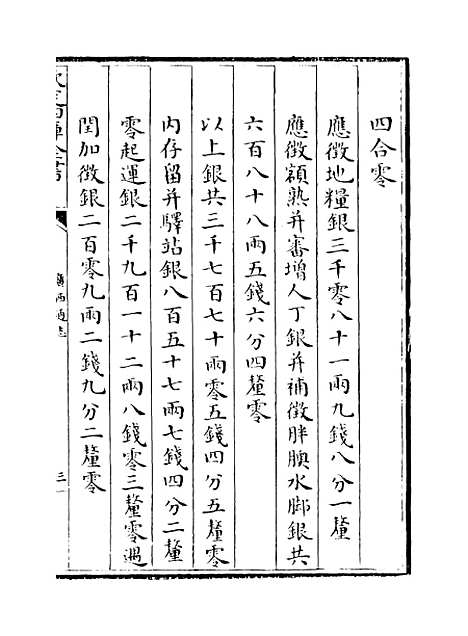 四合零
應徵地糧銀三千零八十一兩九錢八分一釐
應徵額熟并審增人丁銀并補徵胖腴水脚銀共
六百八十八兩五錢六分四釐零
以上銀共三千七百七十兩零五錢四分五釐零
內存留并驛站銀八百五十七兩七錢四分二釐
零起運銀二千九百一十二兩八錢零三釐零遇
閏加徵銀二百零九兩二錢九分二釐零
欽定四庫全書
廣西通志